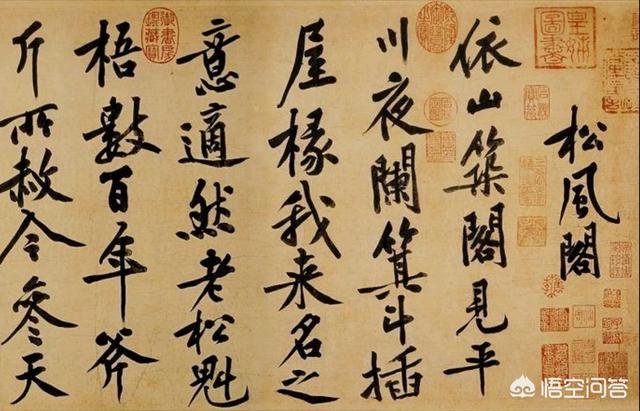 皇姊圖書
松風閣
依山築閣見平
川夜闌箕斗插
屋椽我来名之
意適然老松魁
梧數百年斧
斤所赦今參天
悟空问答